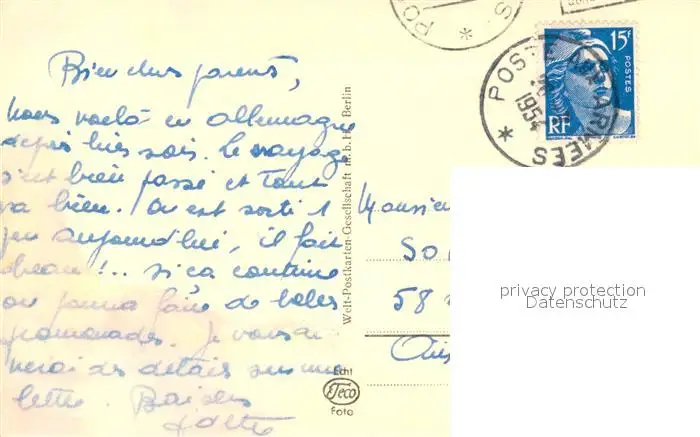 Bien chers parents,
nous voilà en Allemagne
depuis hier soir. Le voyage
s'est bien passé et tout
va bien. On est sorti 1
peu aujourd'hui, il fait
beau!.. si ça continue
on pourra faire de belles
promenades. Je vous
des détails sur une
lettre. Baisers
POSTE AUX ARMÉES
1954
15F
POSTES
RF
Monsieur
58
Welt-Postkarten-Gesellschaft m.b.H., Berlin
Echt
Foto
privacy protection
Datenschutz